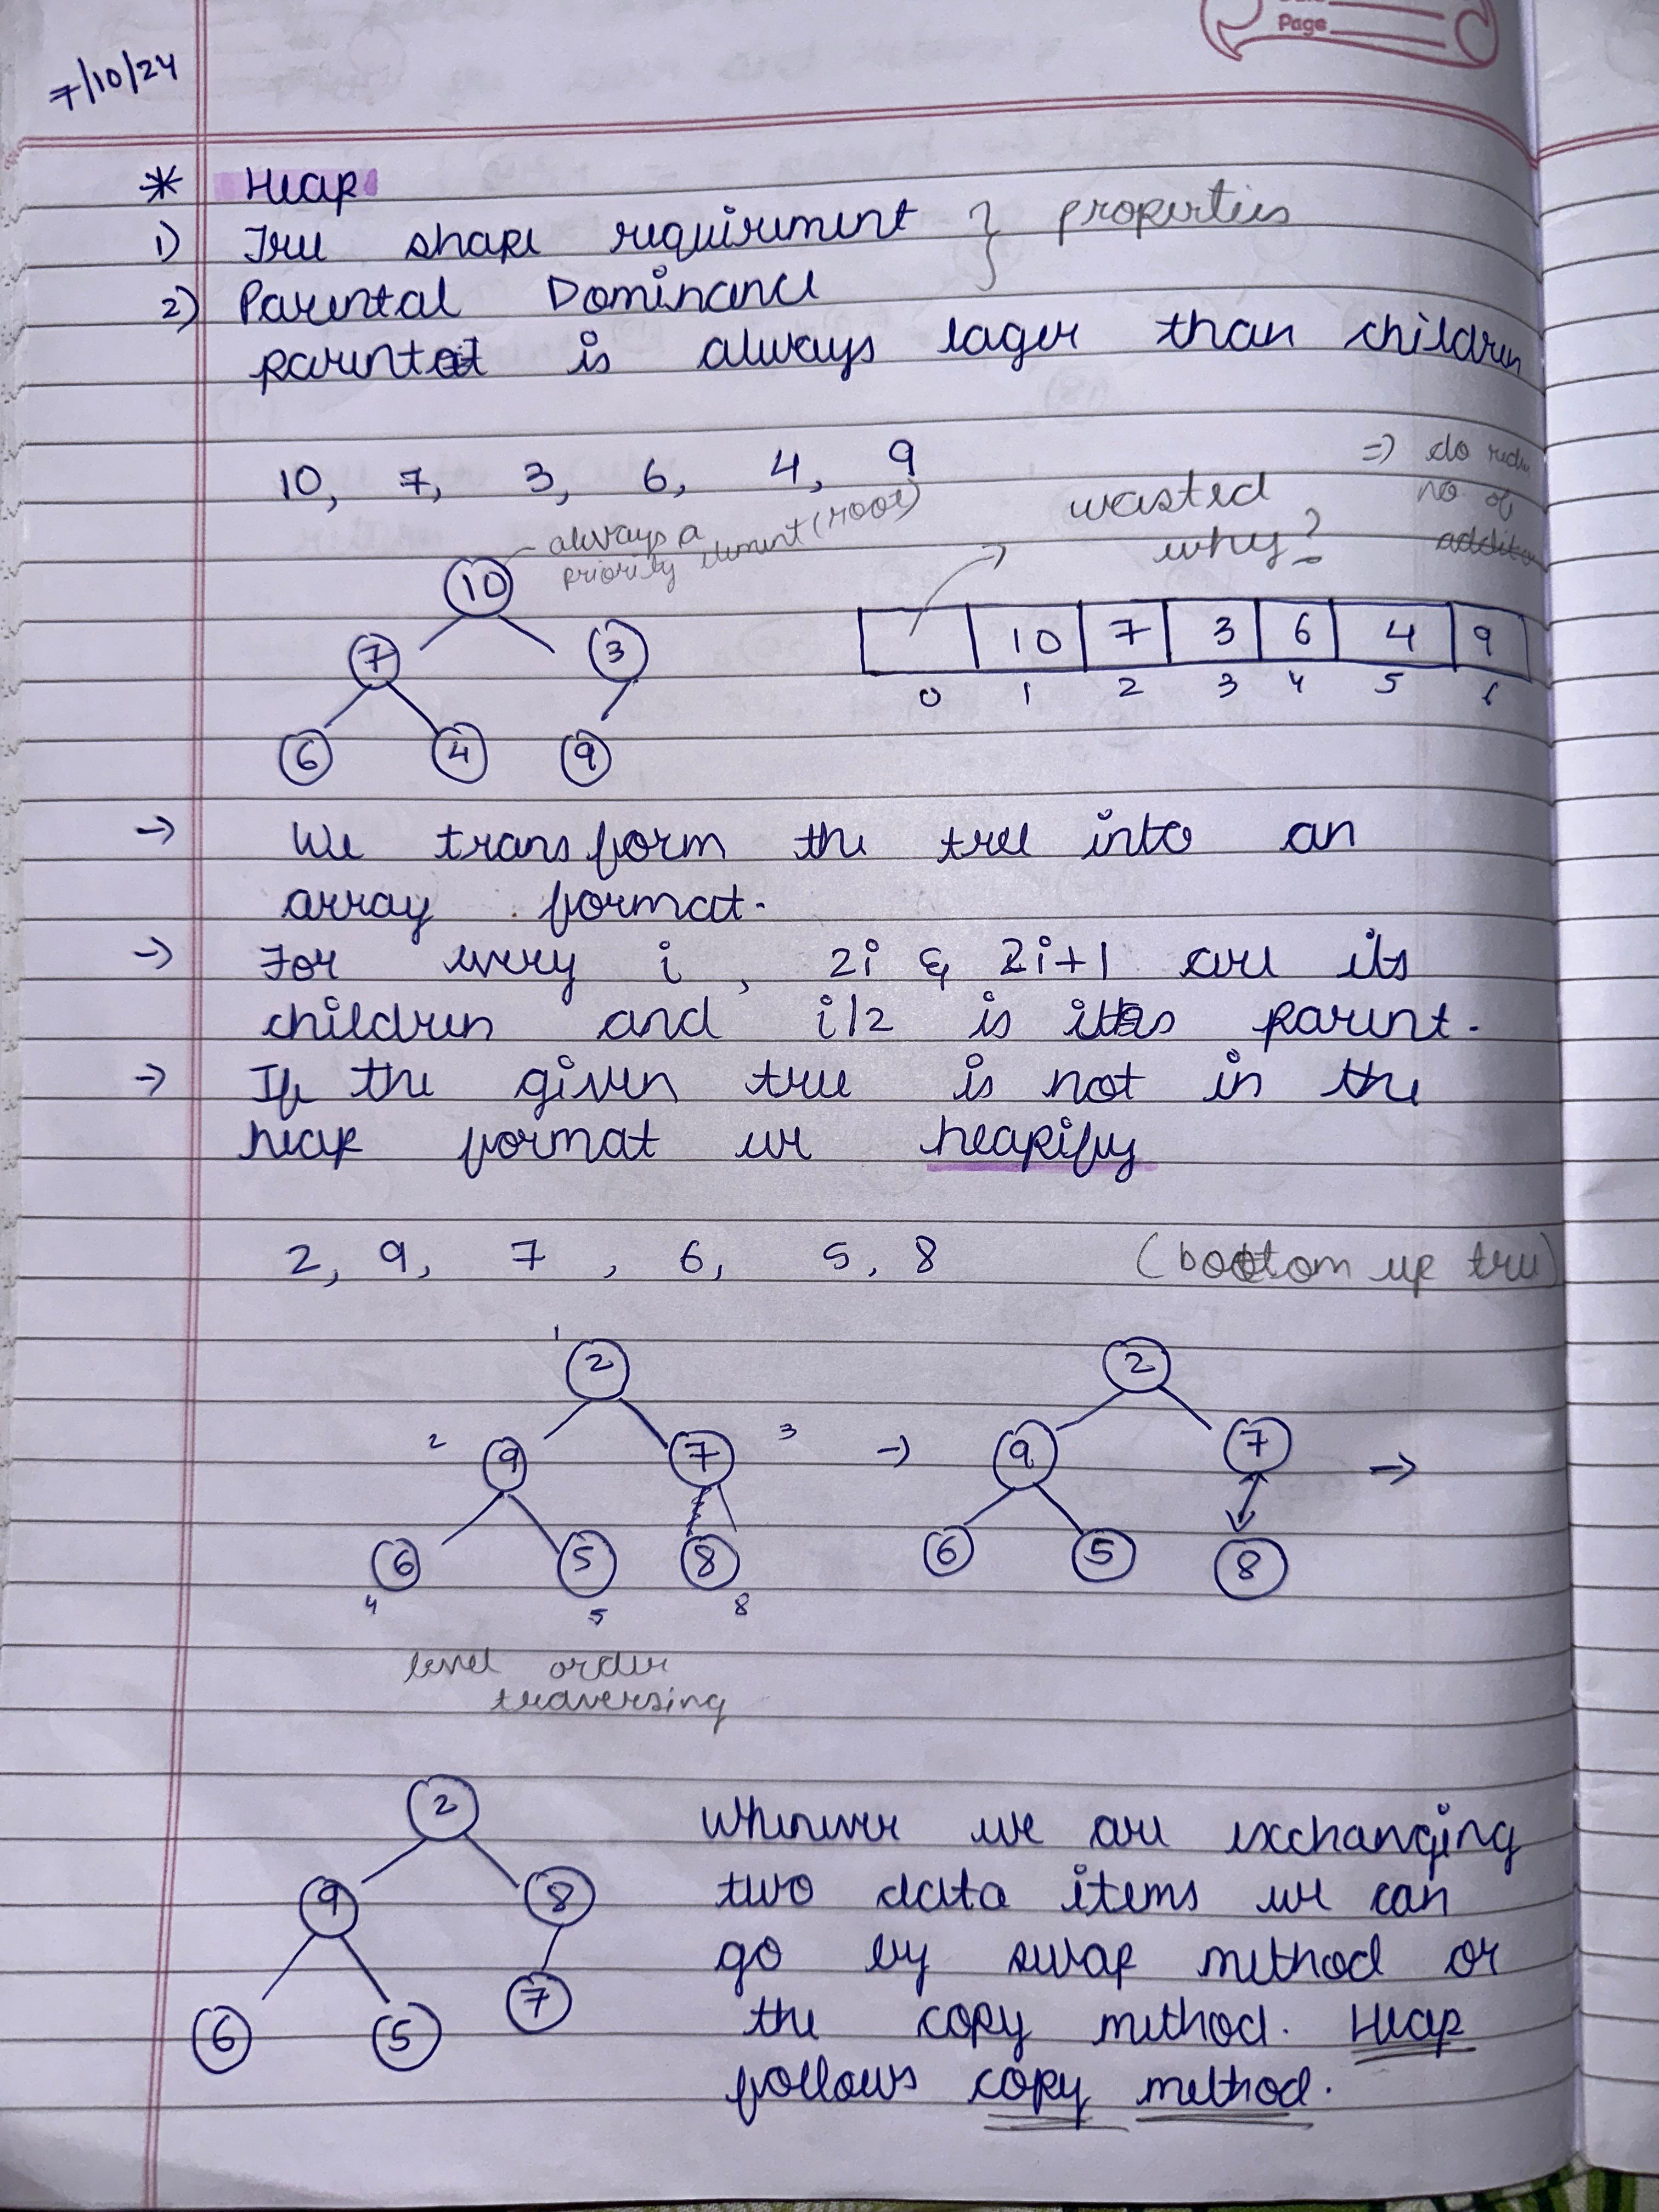 Page
7/10/24
* Heap
1) Tree shape requirement } properties
2) Parental Dominance
parent is always lager than children
10, 7, 3, 6, 4, 9
=) do redu
no. of
wasted
why?
always a
priority element (root)
10
7 3
6 4 9
10 7 3 6 4 9
0 1 2 3 4 5 6
→ We transform the tree into an
array format.
→ For every i, 2i & 2i+1 are its
children and i/2 is its parent.
→ If the given tree is not in the
heap format we heapify
2, 9, 7, 6, 5, 8 (bottom up tree)
1 2 2
2 9 7 3 → 9 7 →
6 5 8 6 5 8
4 5 8
level order
traversing
2
9 8
6 5 7
Whenever we are exchanging
two data items we can
go by swap method or
the copy method. Heap
follows copy method.